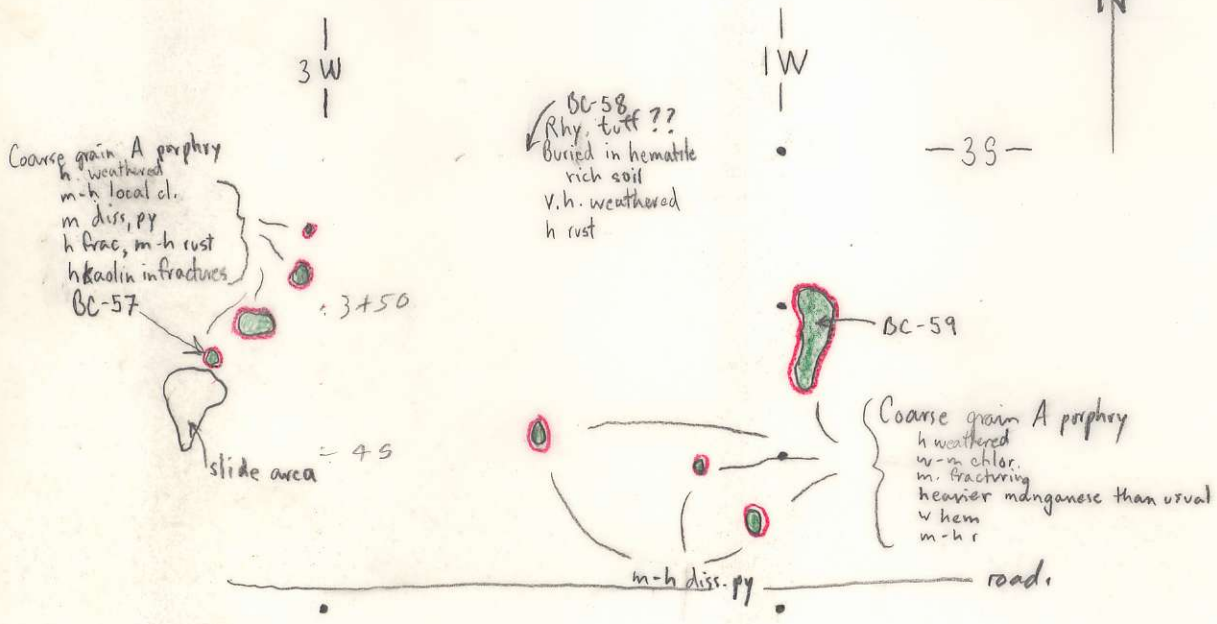 N
3 W
1 W
BC-58
Rhy. tuff ??
Buried in hematite
rich soil
v.h. weathered
h rust
-3S-
Coarse grain A porphry
h. weathered
m-h local cl.
m diss, py
h frac, m-h rust
h kaolin in fractures
BC-57
3+50
BC-59
slide area
4S
Coarse grain A porphry
h weathered
w-m chlor.
m. fracturing
heavier manganese than usual
w hem
m-h r
m-h diss. py
road.